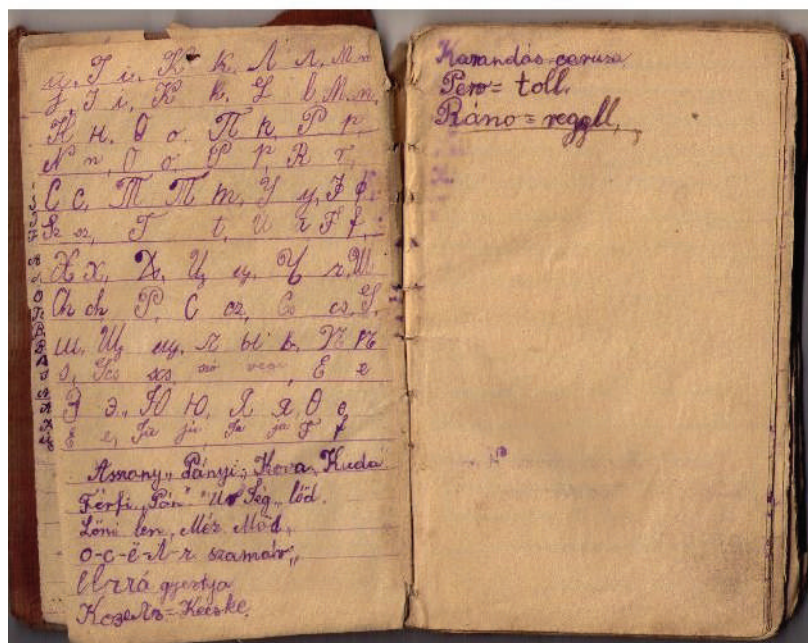 й, І і, К к, Л л, М м
J, I i, K k, L l M m,
Н н, О о, П п, Р р,
N n, O o, P p, R r,
С с, Т Т т, У у, Ф ф,
Sz sz, T t, U u F f,
Х х, Ц ц, Ч ч, Ш
Ch ch, C cz, Cs cs, S,
ш, Щ щ, ы ь, Ѣ ѣ
s, E e
Э э, Ю ю, Я я, Ѳ ѳ
E e, Ju ju, Ja ja F f
Asszony, Pányi, Kova, Kuda
Férfi „Pán" Ur Ség, lőd.
Lőni len, Méz Mőd,
о-с-ё-л-ъ szamár,
gyertya
Козелъ = Kecske.
Karandás caruza
Pero = toll.
Ráno = reggell,